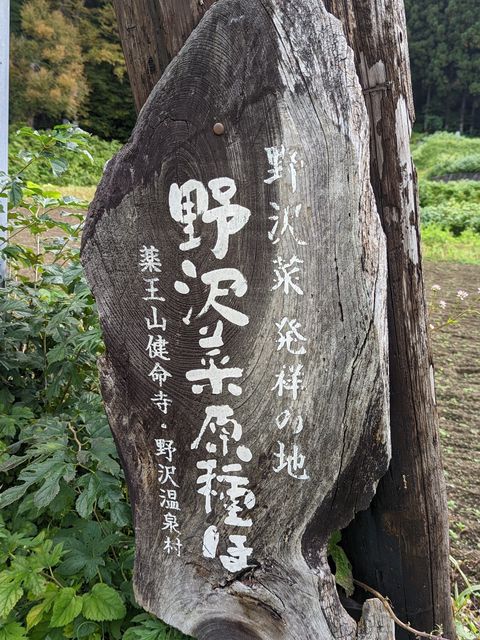 野沢菜発祥の地
野沢菜原種ほ
薬王山健命寺・野沢温泉村